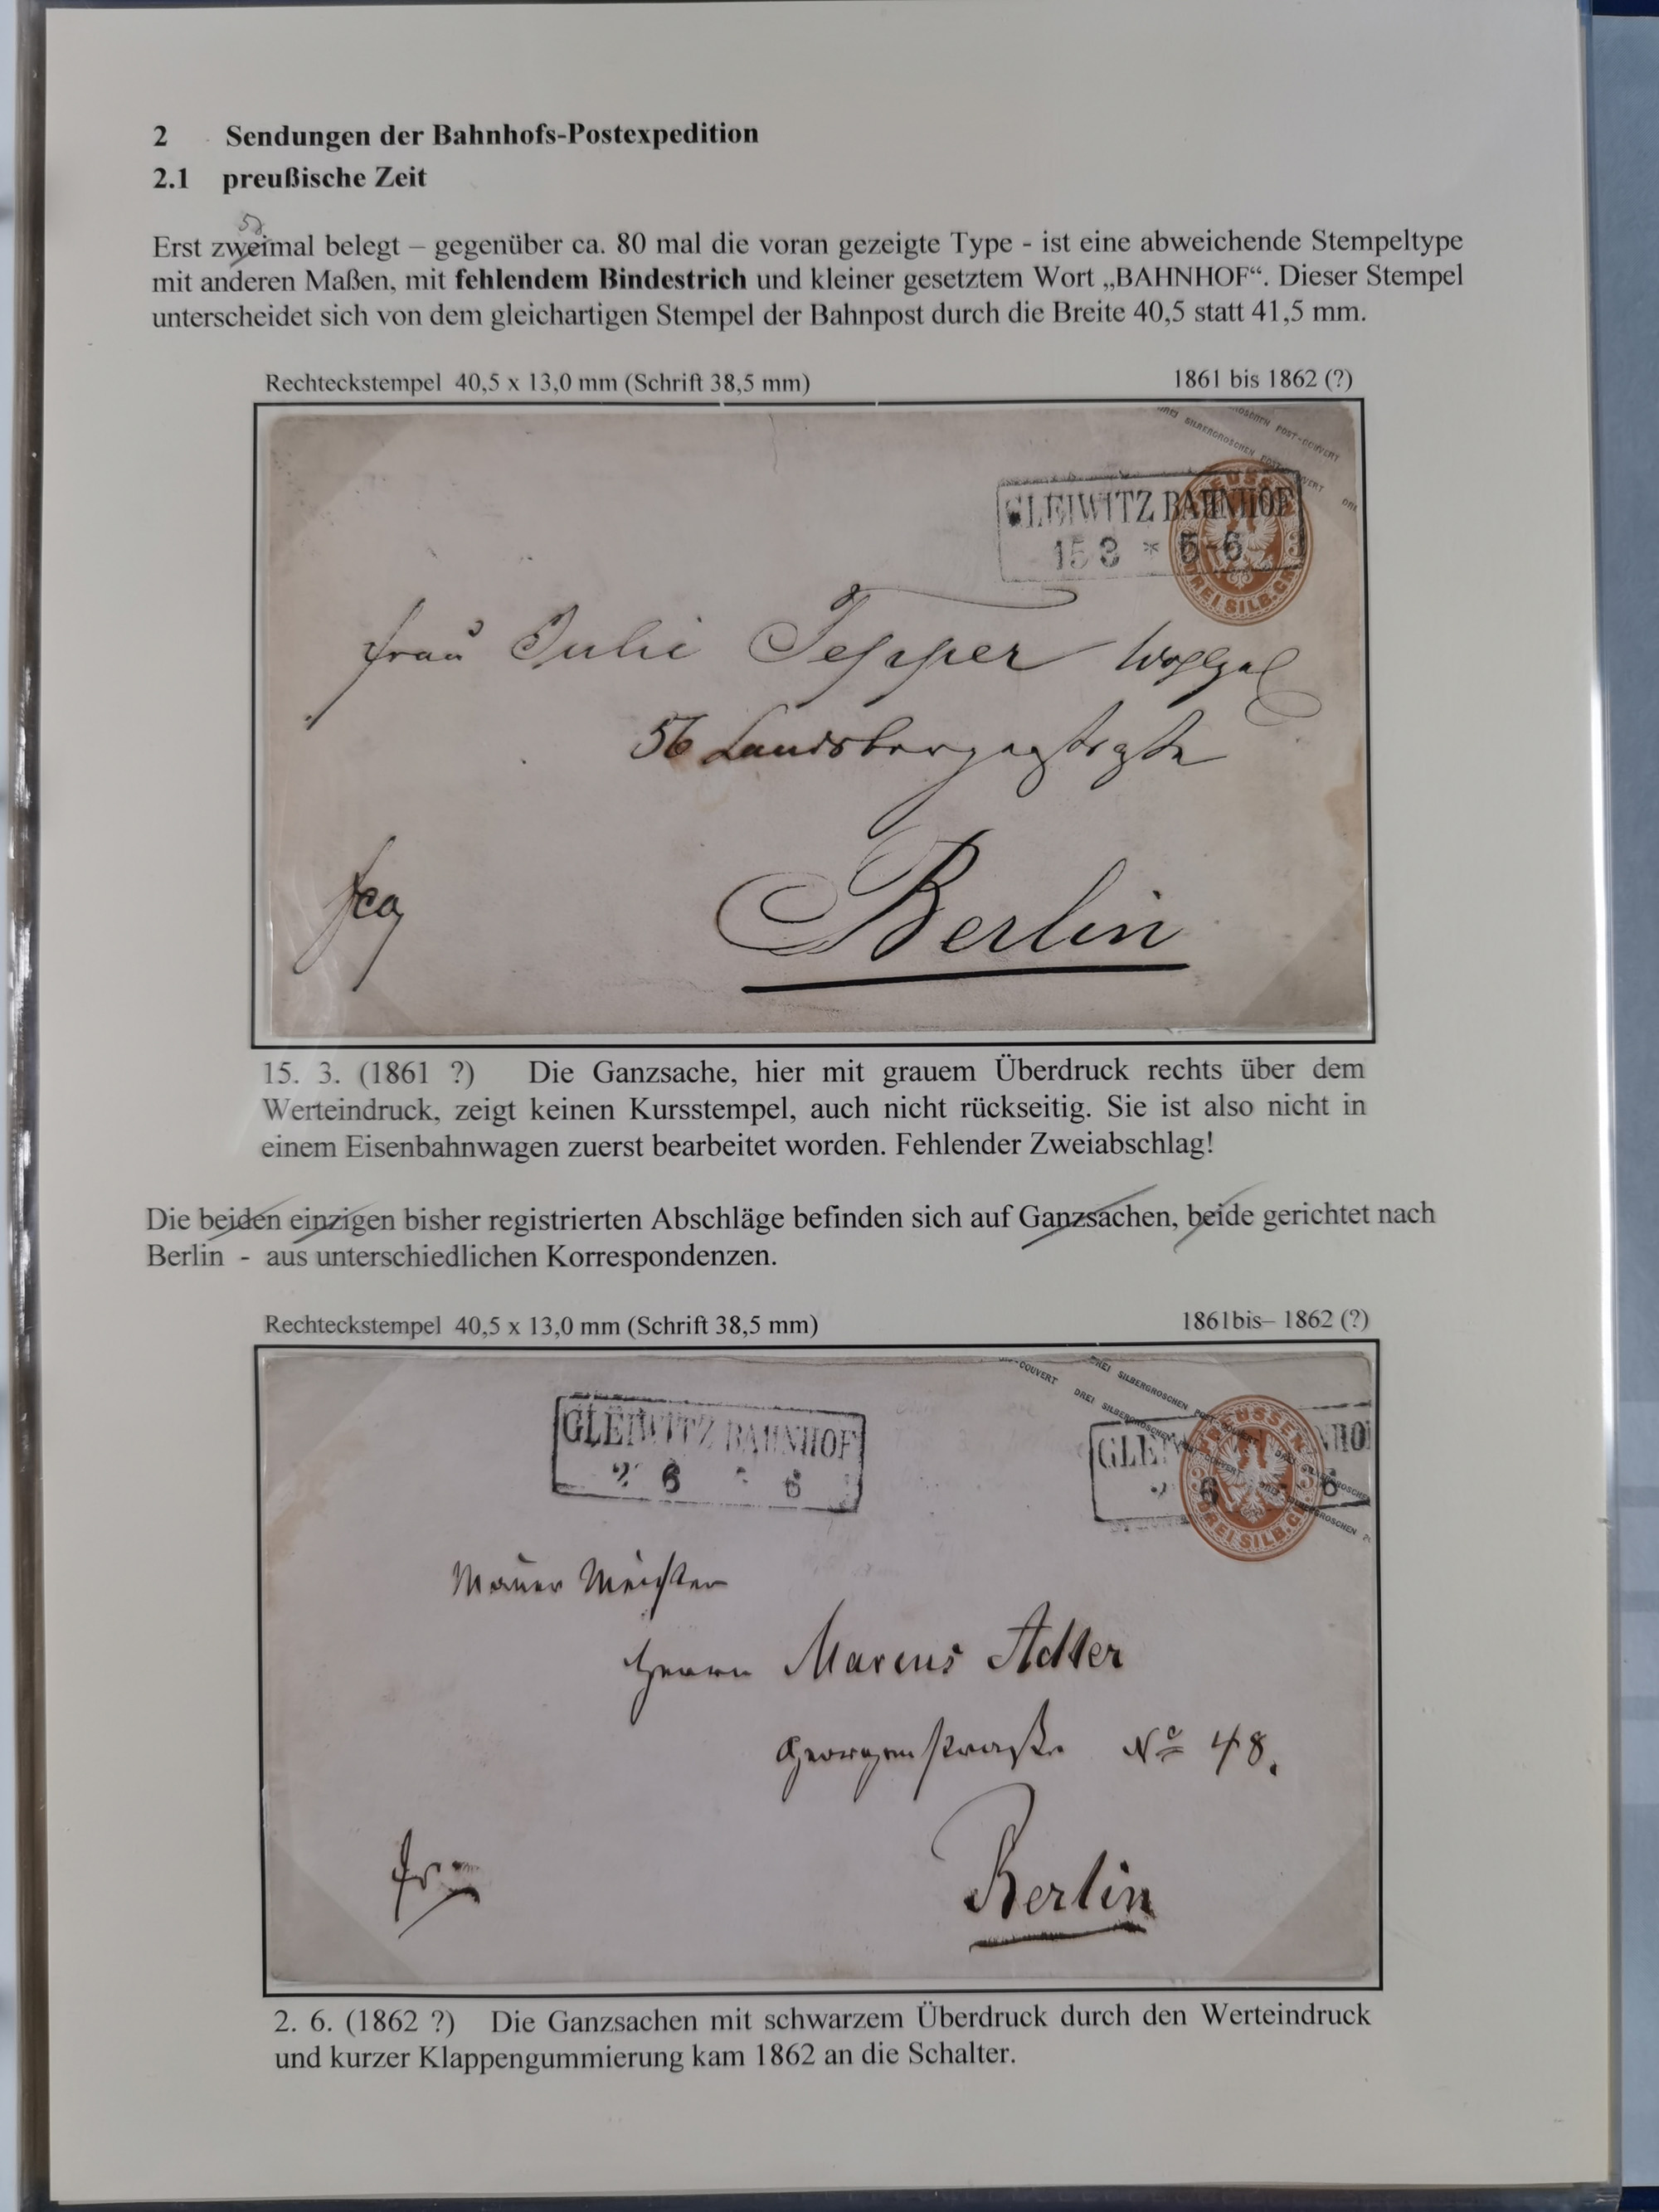 2 Sendungen der Bahnhofs-Postexpedition
2.1 preußische Zeit
Erst zweimal belegt – gegenüber ca. 80 mal die voran gezeigte Type - ist eine abweichende Stempeltype
mit anderen Maßen, mit fehlendem Bindestrich und kleiner gesetztem Wort „BAHNHOF“. Dieser Stempel
unterscheidet sich von dem gleichartigen Stempel der Bahnpost durch die Breite 40,5 statt 41,5 mm.
Rechteckstempel 40,5 x 13,0 mm (Schrift 38,5 mm) 1861 bis 1862 (?)
SILBERGROSCHEN POST-COUVERT
GLEIWITZ BAHNHOF
15 3 * 5-6
DREI SILB.GR.
Frau Julie Tepper
56 Landsbergerstraße
Berlin
15. 3. (1861 ?) Die Ganzsache, hier mit grauem Überdruck rechts über dem
Werteindruck, zeigt keinen Kursstempel, auch nicht rückseitig. Sie ist also nicht in
einem Eisenbahnwagen zuerst bearbeitet worden. Fehlender Zweiabschlag!
Die beiden einzigen bisher registrierten Abschläge befinden sich auf Ganzsachen, beide gerichtet nach
Berlin - aus unterschiedlichen Korrespondenzen.
Rechteckstempel 40,5 x 13,0 mm (Schrift 38,5 mm) 1861bis– 1862 (?)
DREI SILBERGROSCHEN POST-COUVERT
GLEIWITZ BAHNHOF
2 6 6
PREUSSEN
DREI SILB.GR.
Mauer Meister
Herrn Marcus Adler
Georgenstraße No 48.
Berlin
2. 6. (1862 ?) Die Ganzsachen mit schwarzem Überdruck durch den Werteindruck
und kurzer Klappengummierung kam 1862 an die Schalter.